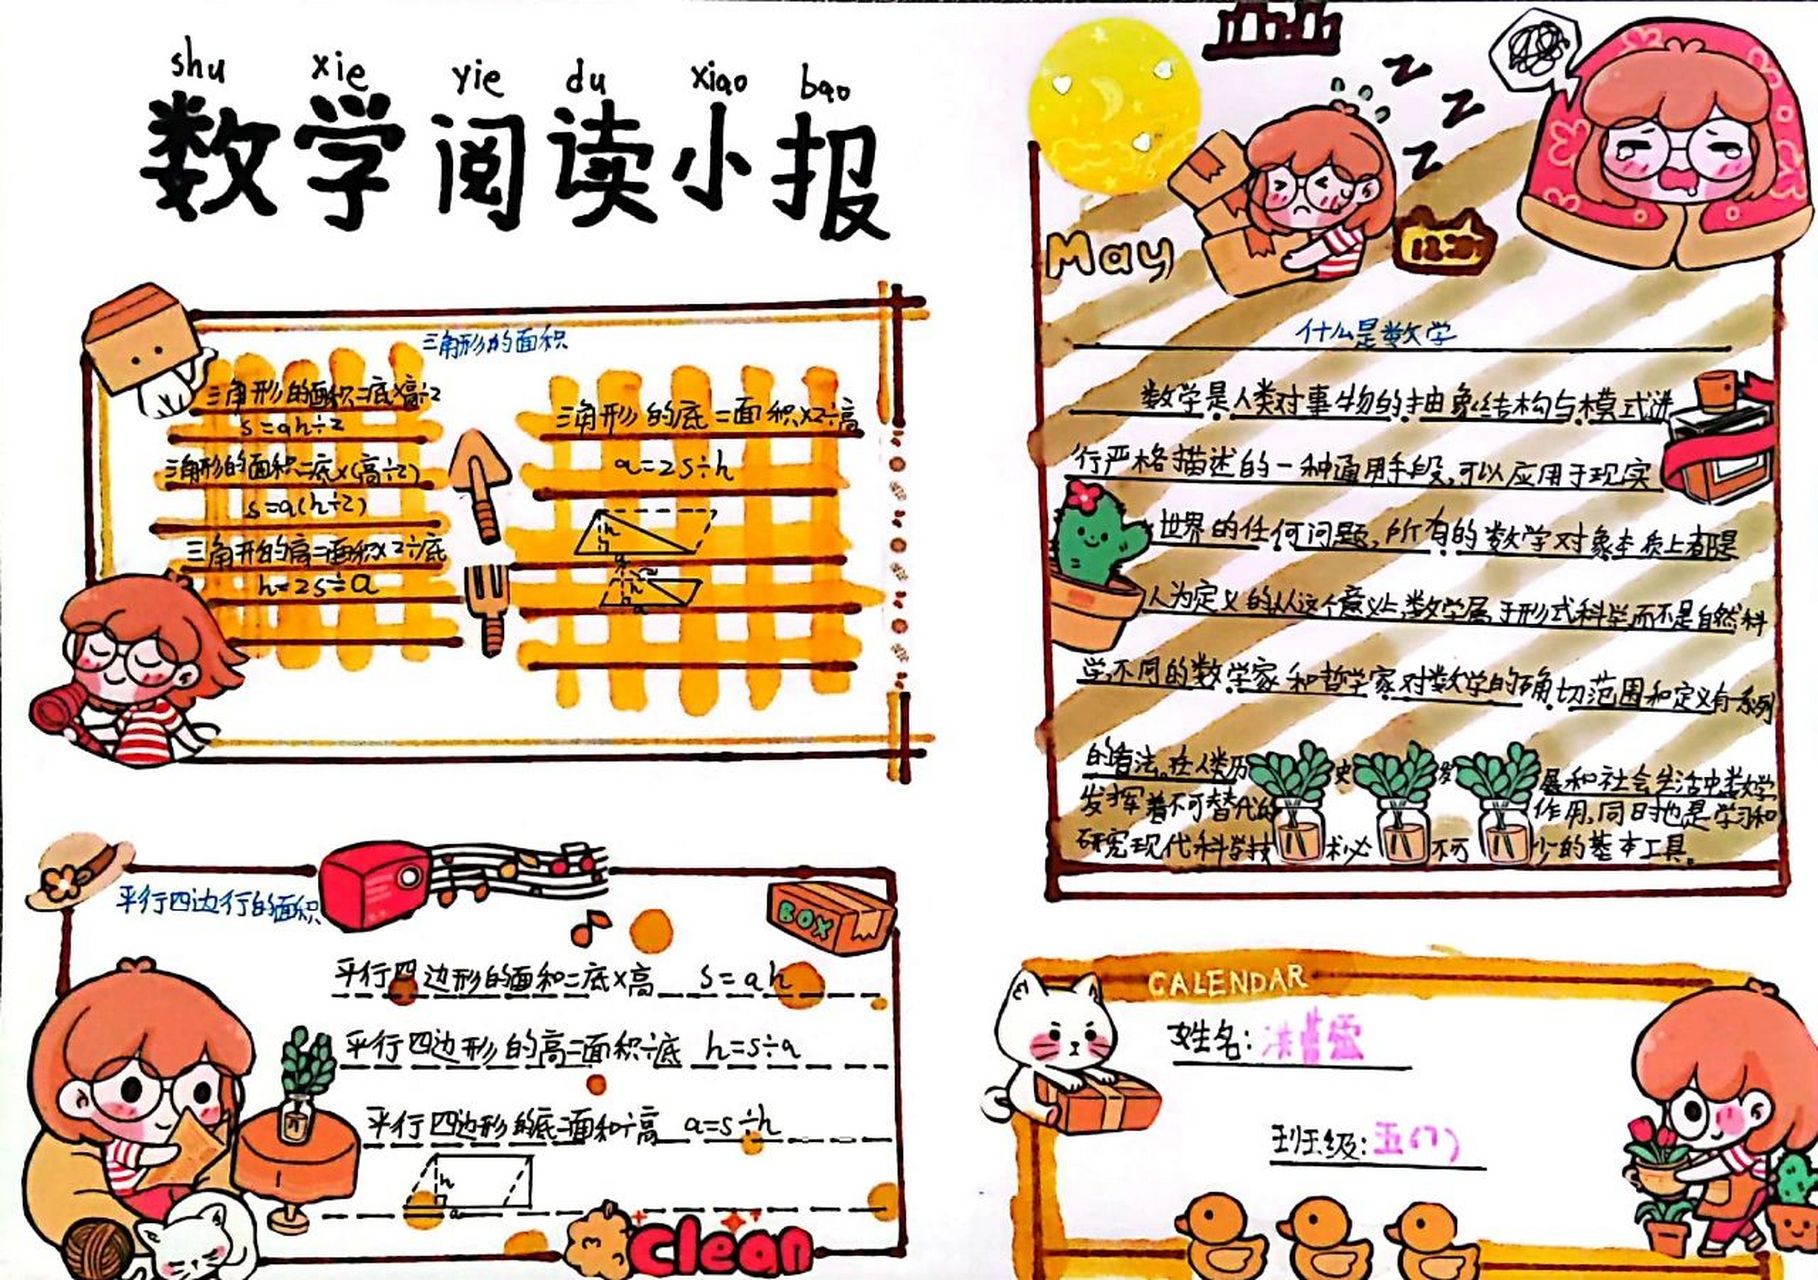 shu xie yie du xiao bao
数学阅读小报
三角形的面积
三角形的面积=底×高÷2
s=ah÷2
三角形的面积=底×(高÷2)
s=a(h÷2)
三角开的高=面积×2÷底
h=2s÷a
三角形的底=面积×2÷高
a=2s÷h
h
a
h
a
平行四边行的面积
BOX
平行四边形的面和=底×高 s=ah
平行四边形的高=面积÷底 h=s÷a
平行四边形的底=面和÷高 a=s÷h
h
a
Clean
z
z
z
May
12.20
什么是数学
数学是人类对事物的抽象结构与模式进
行严格描述的一种通用手段,可以应用于现实
世界的任何问题,所有的数学对象本质上都是
人为定义的从这个意义上,数学属于形式科学而不是自然科
学,不同的数学家和哲学家对数学的确切范围和定义有一系列
的看法。在人类历史发展和社会生活中数学
发挥着不可替代的作用,同时也是学习和
研究现代科学技术必不可少的基本工具。
CALENDAR
姓名:
班级:五(7)